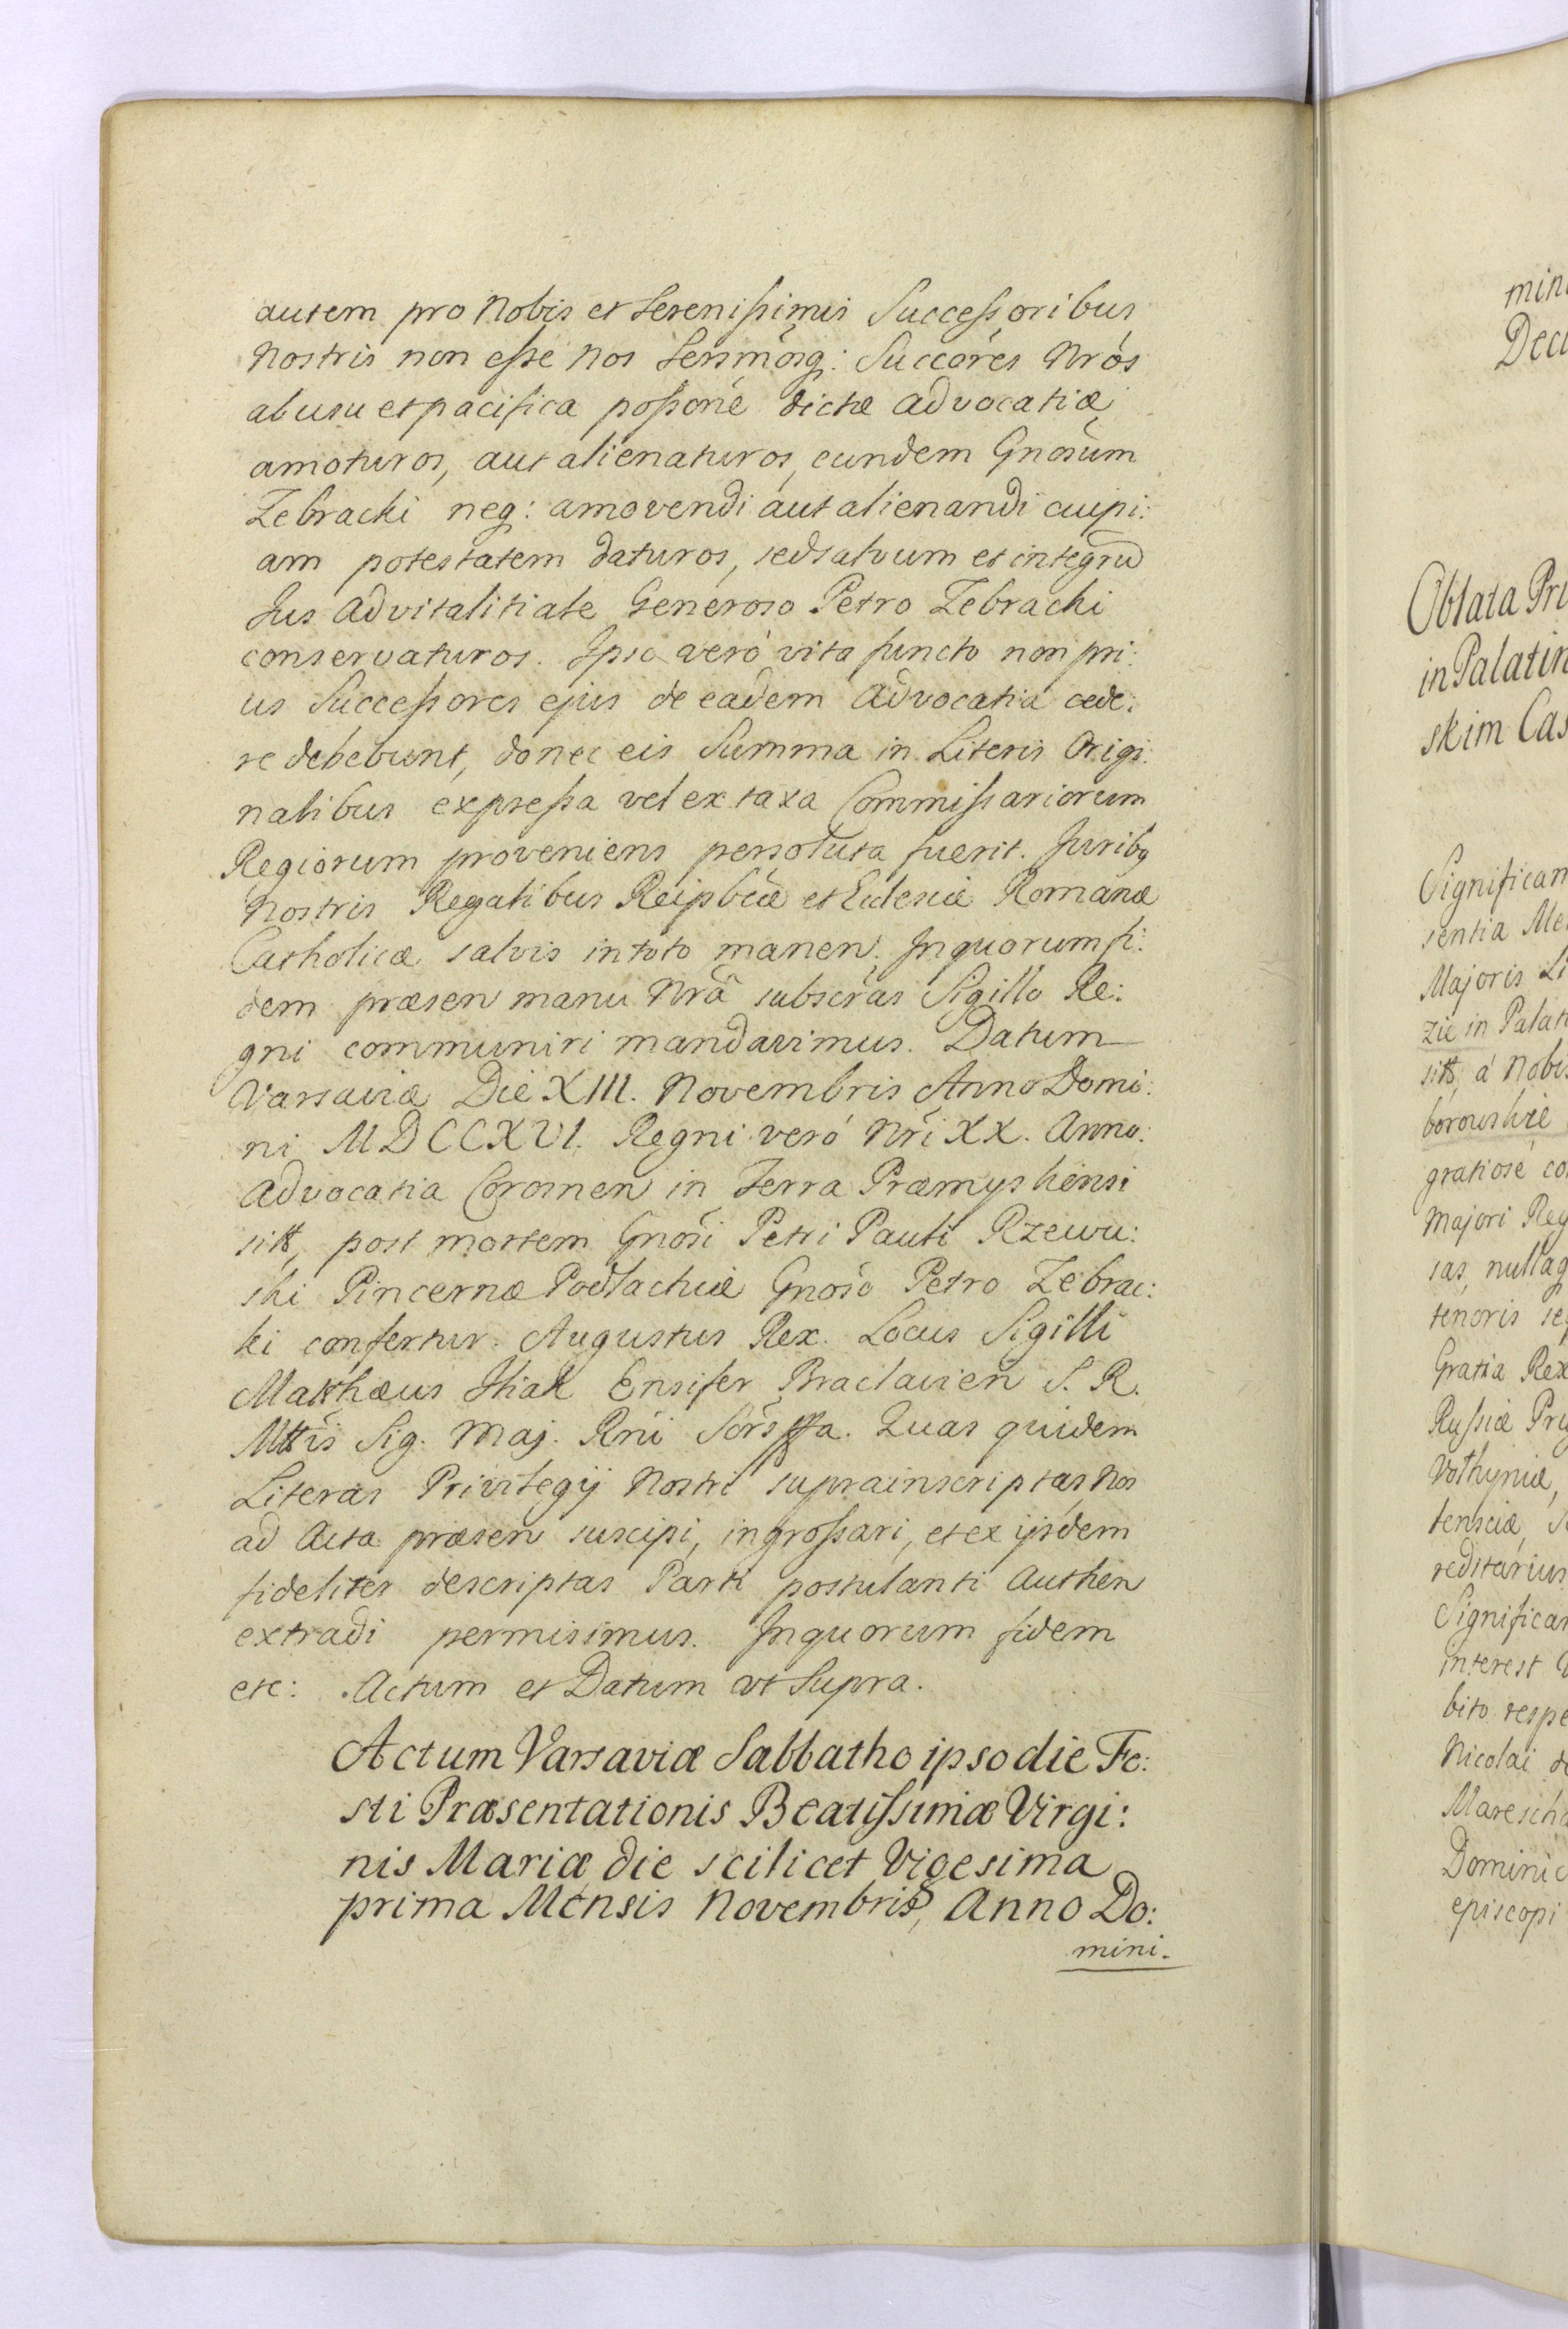 autem pro Nobis et Serenissimis Successoribus
Nostris non esse Nos Sersmosq: Succores Nros
ab usu et pacifica possone dictæ Advocatiæ
amoturos, aut alienaturos, eundem Gnosum
Zebracki neq: amovendi aut alienandi cuipi:
am potestatem daturos, sed salvum et integrũ
Jus Advitalitiale Generoso Petro Zebracki
conservaturos. Ipso veró vita functo non pri:
us Successores ejus de eadem Advocatia cede:
re debebunt, donec eis Summa in Literis Origi:
nalibus expressa vel ex taxa Commissariorum
Regiorum proveniens persoluta fuerit. Juribq
Nostris Regalibus Reipbcæ et Eclesiæ Romanæ
Catholicæ salvis in toto manen. In quorum fi:
dem præsen manu Nrã subscras Sigillo Re:
gni communiri mandavimus. Datum
Varsaviæ Die XIII. Novembris Anno Domi:
ni MDCCXVI. Regni veró Nri XX. Anno:
Advocatia Crosnen in Terra Præmysliensi
sitt, post mortem Gnosi Petri Pauli Rzewu:
ski Pincernæ Podlachiæ Gnoso Petro Zebrac:
ki confertur. Augustus Rex. Locus Sigilli
Matthæus Ensifer Braclavien S. R.
Mttis Sig. Maj. Rni Srs Quas quidem
Literas Privilegij Nostri suprainscriptas Nos
ad Acta præsen suscipi, ingrossari, et ex ijsdem
fideliter descriptas Parti postulanti Authen
extradi permisimus. In quorum fidem
etc: Actum et Datum ut Supra.
Actum Varsaviæ Sabbatho ipso die Fe:
sti Præsentationis Beatissimæ Virgi:
nis Mariæ die scilicet Vigesima
prima Mensis Novembris, Anno Do:
mini.
Decu
Oblata Pri
in Palatin
skim Cas
Significam
sentia Me
Majoris Li
zie in Palat
sitt, á Nobis
borowskie
gratiosé co
Majori Reg
sas, nullaq
tenoris se
Gratia Rex
Russiæ Pru
Volhyniæ,
tensciæ, S
reditarius
Significam
interest
bito respe
Nicolai de
Marescha
Dominic
episcopi